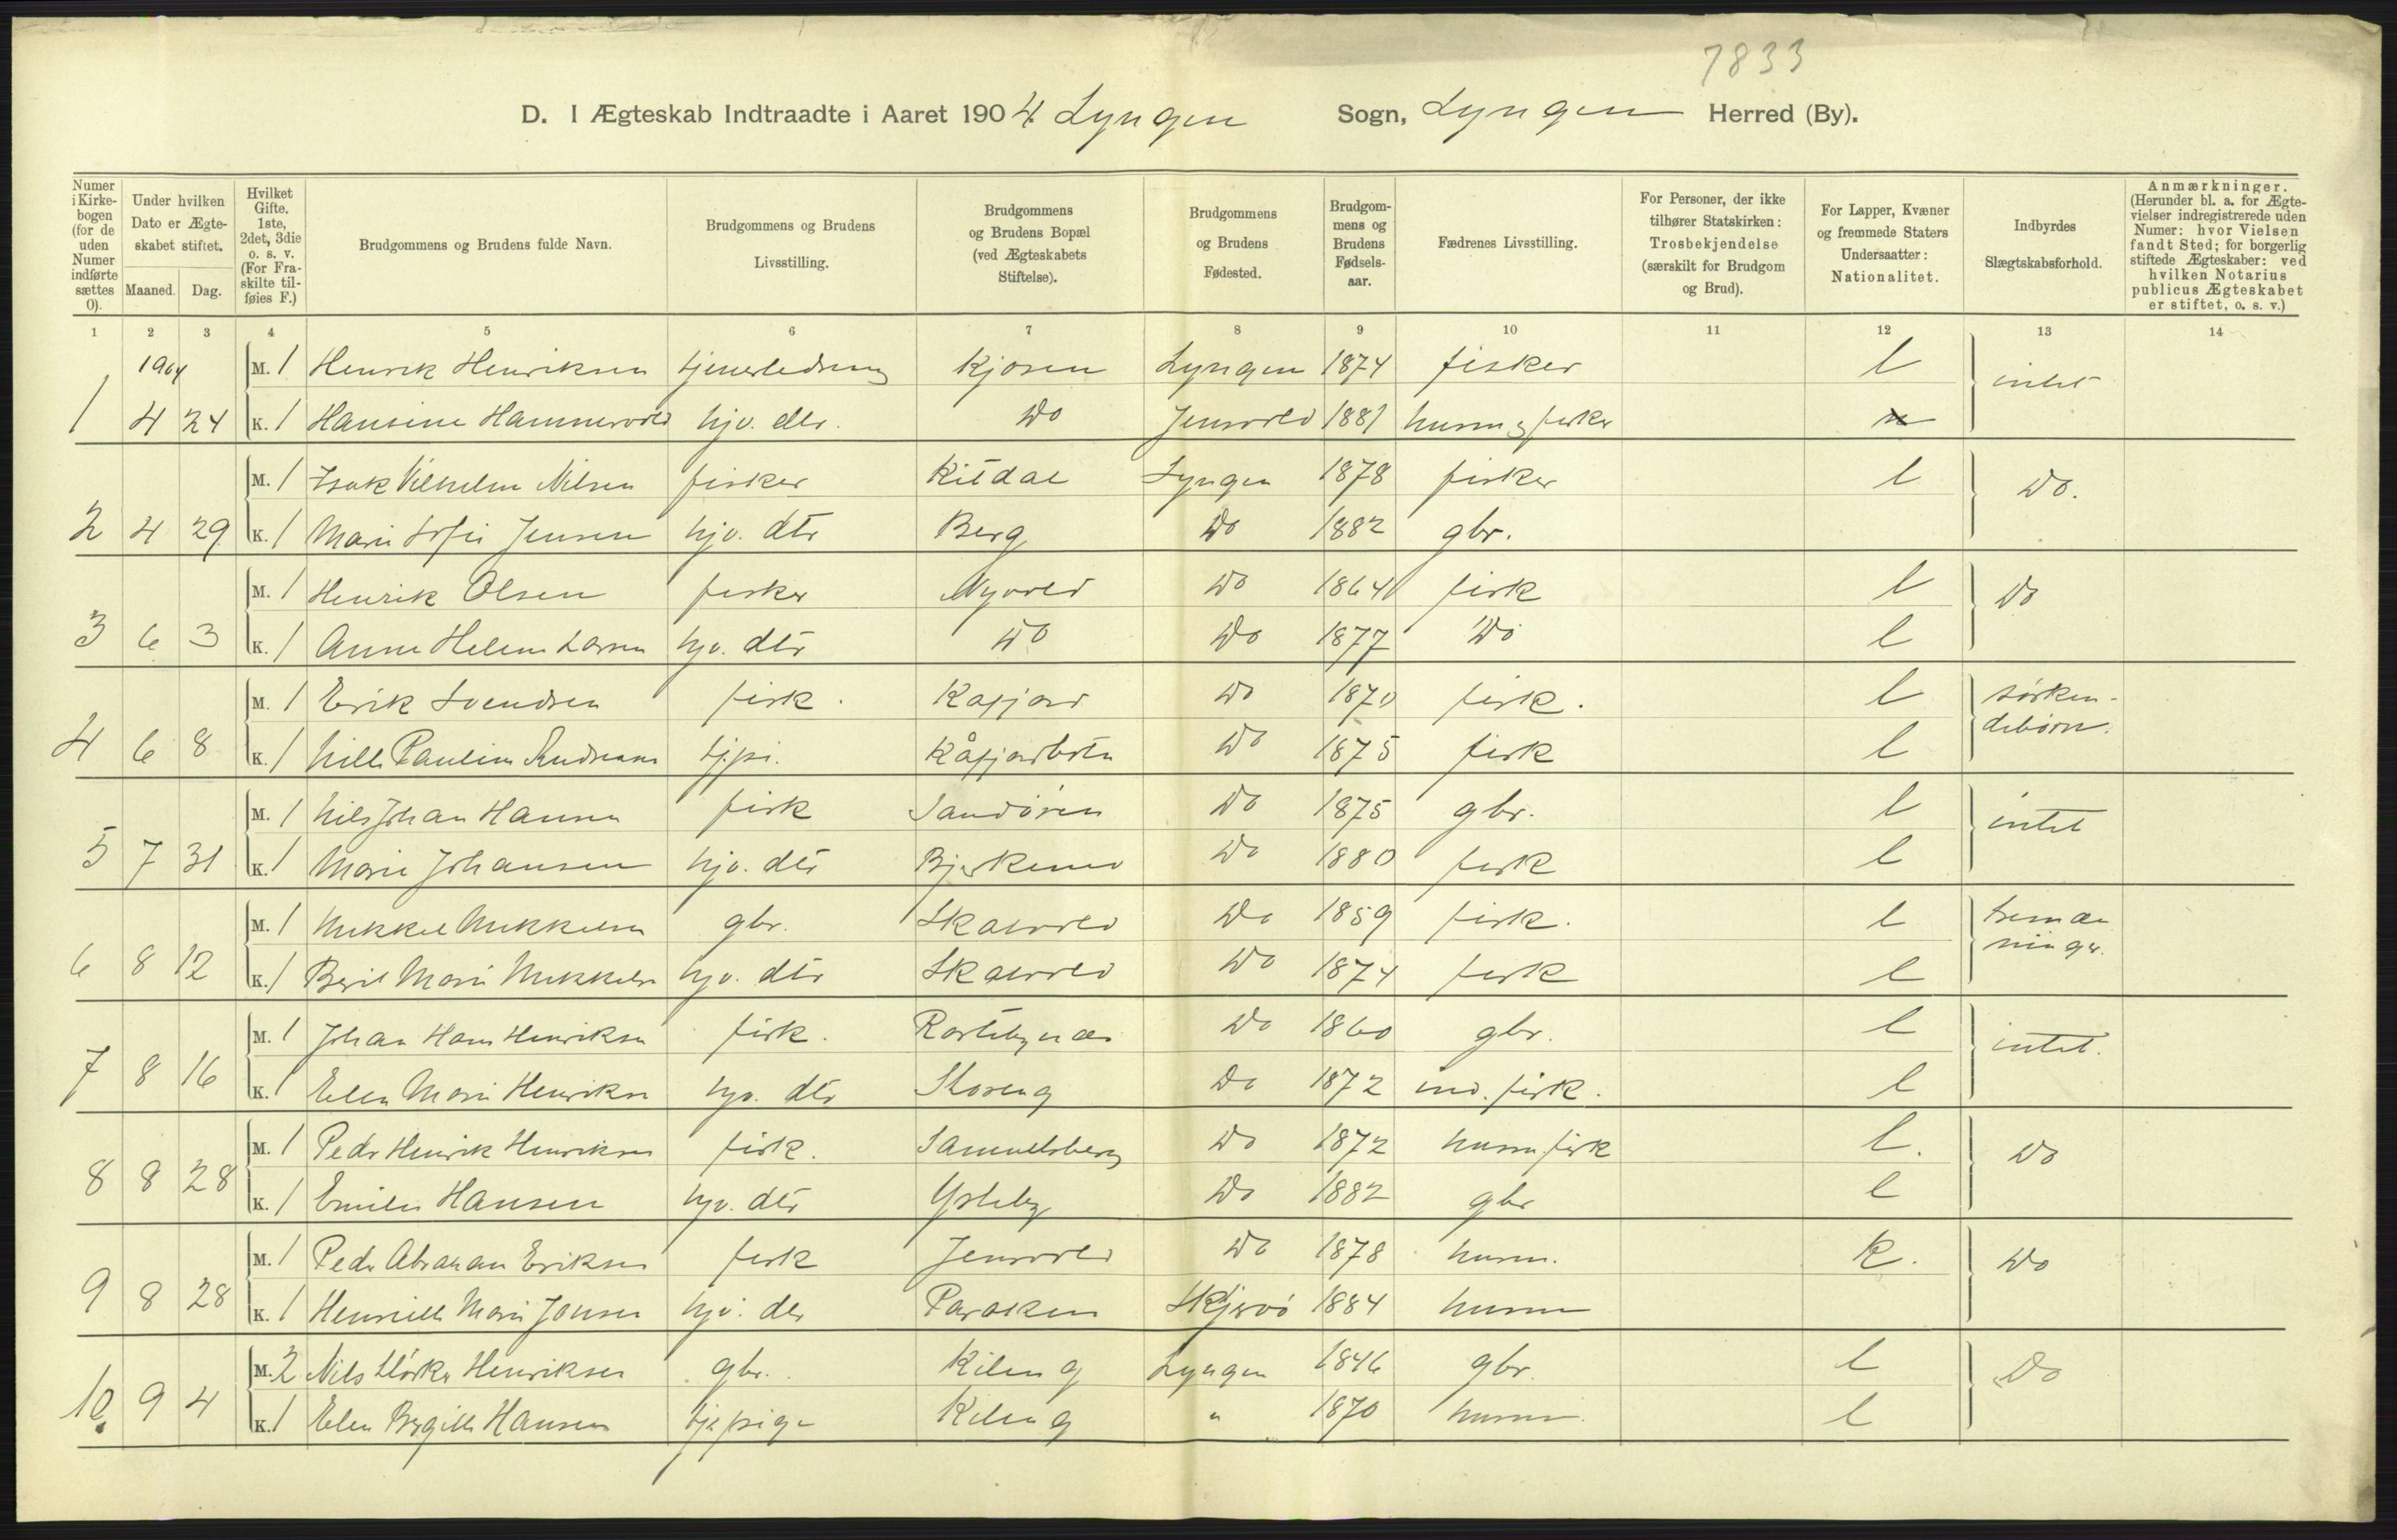 7833
D. I Ægteskab Indtraadte i Aaret 1904. Lyngen Sogn, Lyngen Herred (By).
Numer i Kirkebogen (for de uden Numer indførte sættes 0). | Under hvilken Dato er Ægteskabet stiftet. Maaned. Dag. | Hvilket Gifte. 1ste, 2det, 3die o. s. v. (For Fraskilte tilføies F.) | Brudgommens og Brudens fulde Navn. | Brudgommens og Brudens Livsstilling. | Brudgommens og Brudens Bopæl (ved Ægteskabets Stiftelse). | Brudgommens og Brudens Fødested. | Brudgommens og Brudens Fødselsaar. | Fædrenes Livsstilling. | For Personer, der ikke tilhører Statskirken: Trosbekjendelse (særskilt for Brudgom og Brud). | For Lapper, Kvæner og fremmede Staters Undersaatter: Nationalitet. | Indbyrdes Slægtskabsforhold. | Anmærkninger. (Herunder bl. a. for Ægtevielser indregistrerede uden Numer: hvor Vielsen fandt Sted; for borgerlig stiftede Ægteskaber: ved hvilken Notarius publicus Ægteskabet er stiftet, o. s. v.)
1 2 3 4 5 6 7 8 9 10 11 12 13 14
1904 M. 1 Henrik Henriksen Kjosen Lyngen 1874 fisker l intet
1 4 24 K. 1 Hansine Hammervold hjv. dtr. Do Jensvold 1881 husm og fisker n
M. 1 Isak Vilhelm Nilsen fisker Kitdal Lyngen 1878 fisker l Do.
2 4 29 K. 1 Marie Sofie Jensen hjv. dtr Berg Do 1882 gbr.
M. 1 Henrik Olsen fisker Nyvold Do 1864 fisk l Do
3 6 3 K. 1 Anne Helene Larsen hjv. dtr Do Do 1877 Do l
M. 1 Erik Svendsen fisk. Kafjord Do 1870 fisk. l sösken-
4 6 8 K. 1 Nille Pauline Andreas tj.pi. Kåfjordbotn Do 1875 fisk l debörn.
M. 1 Nils Johan Hansen fisk Sandören Do 1875 gbr. l intet
5 7 31 K. 1 Marie Johansen hjv. dtr Do 1880 fisk l
M. 1 Mikkel Mikkelsen gbr. Skalvold Do 1859 fisk. l tremæn
6 8 12 K. 1 Berit Marie Mikkelsn hjv. dtr Skalvold Do 1874 fisk l ninger.
M. 1 Johan Hans Henriksen fisk. Do 1860 gbr. l intet.
7 8 16 K. 1 Elen Marie Henriksn hjv. dtr Storeng Do 1872 ind. fisk. l
M. 1 Peder Henrik Henriksen fisk. Samuelsberg Do 1872 husm fisk l. Do
8 8 28 K. 1 Emilie Hansen hjv. dtr Ysteby Do 1882 gbr l
M. 1 Peder Abraham Eriksen fisk Jensvold Do 1878 husm. k. Do
9 8 28 K. 1 Henrikke Marie Jonsen hjv. dtr Skjervö 1884 husm
M. 2 Nils Störker Henriksen gbr. Kileng Lyngen 1846 gbr. l Do
10. 9 4 K. 1 Elen Birgitte Hansen tje pige Kileng " 1870 husm. l